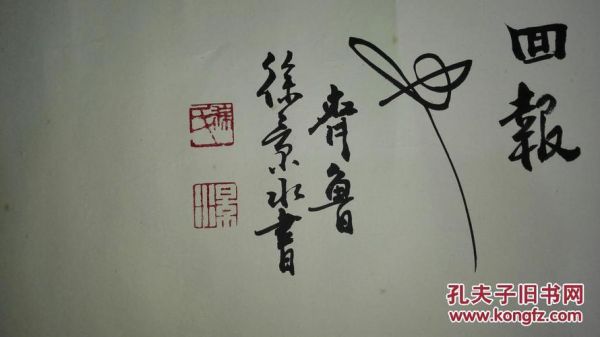 回報
齊魯
徐景水書
孔夫子旧书网
www.kongfz.com